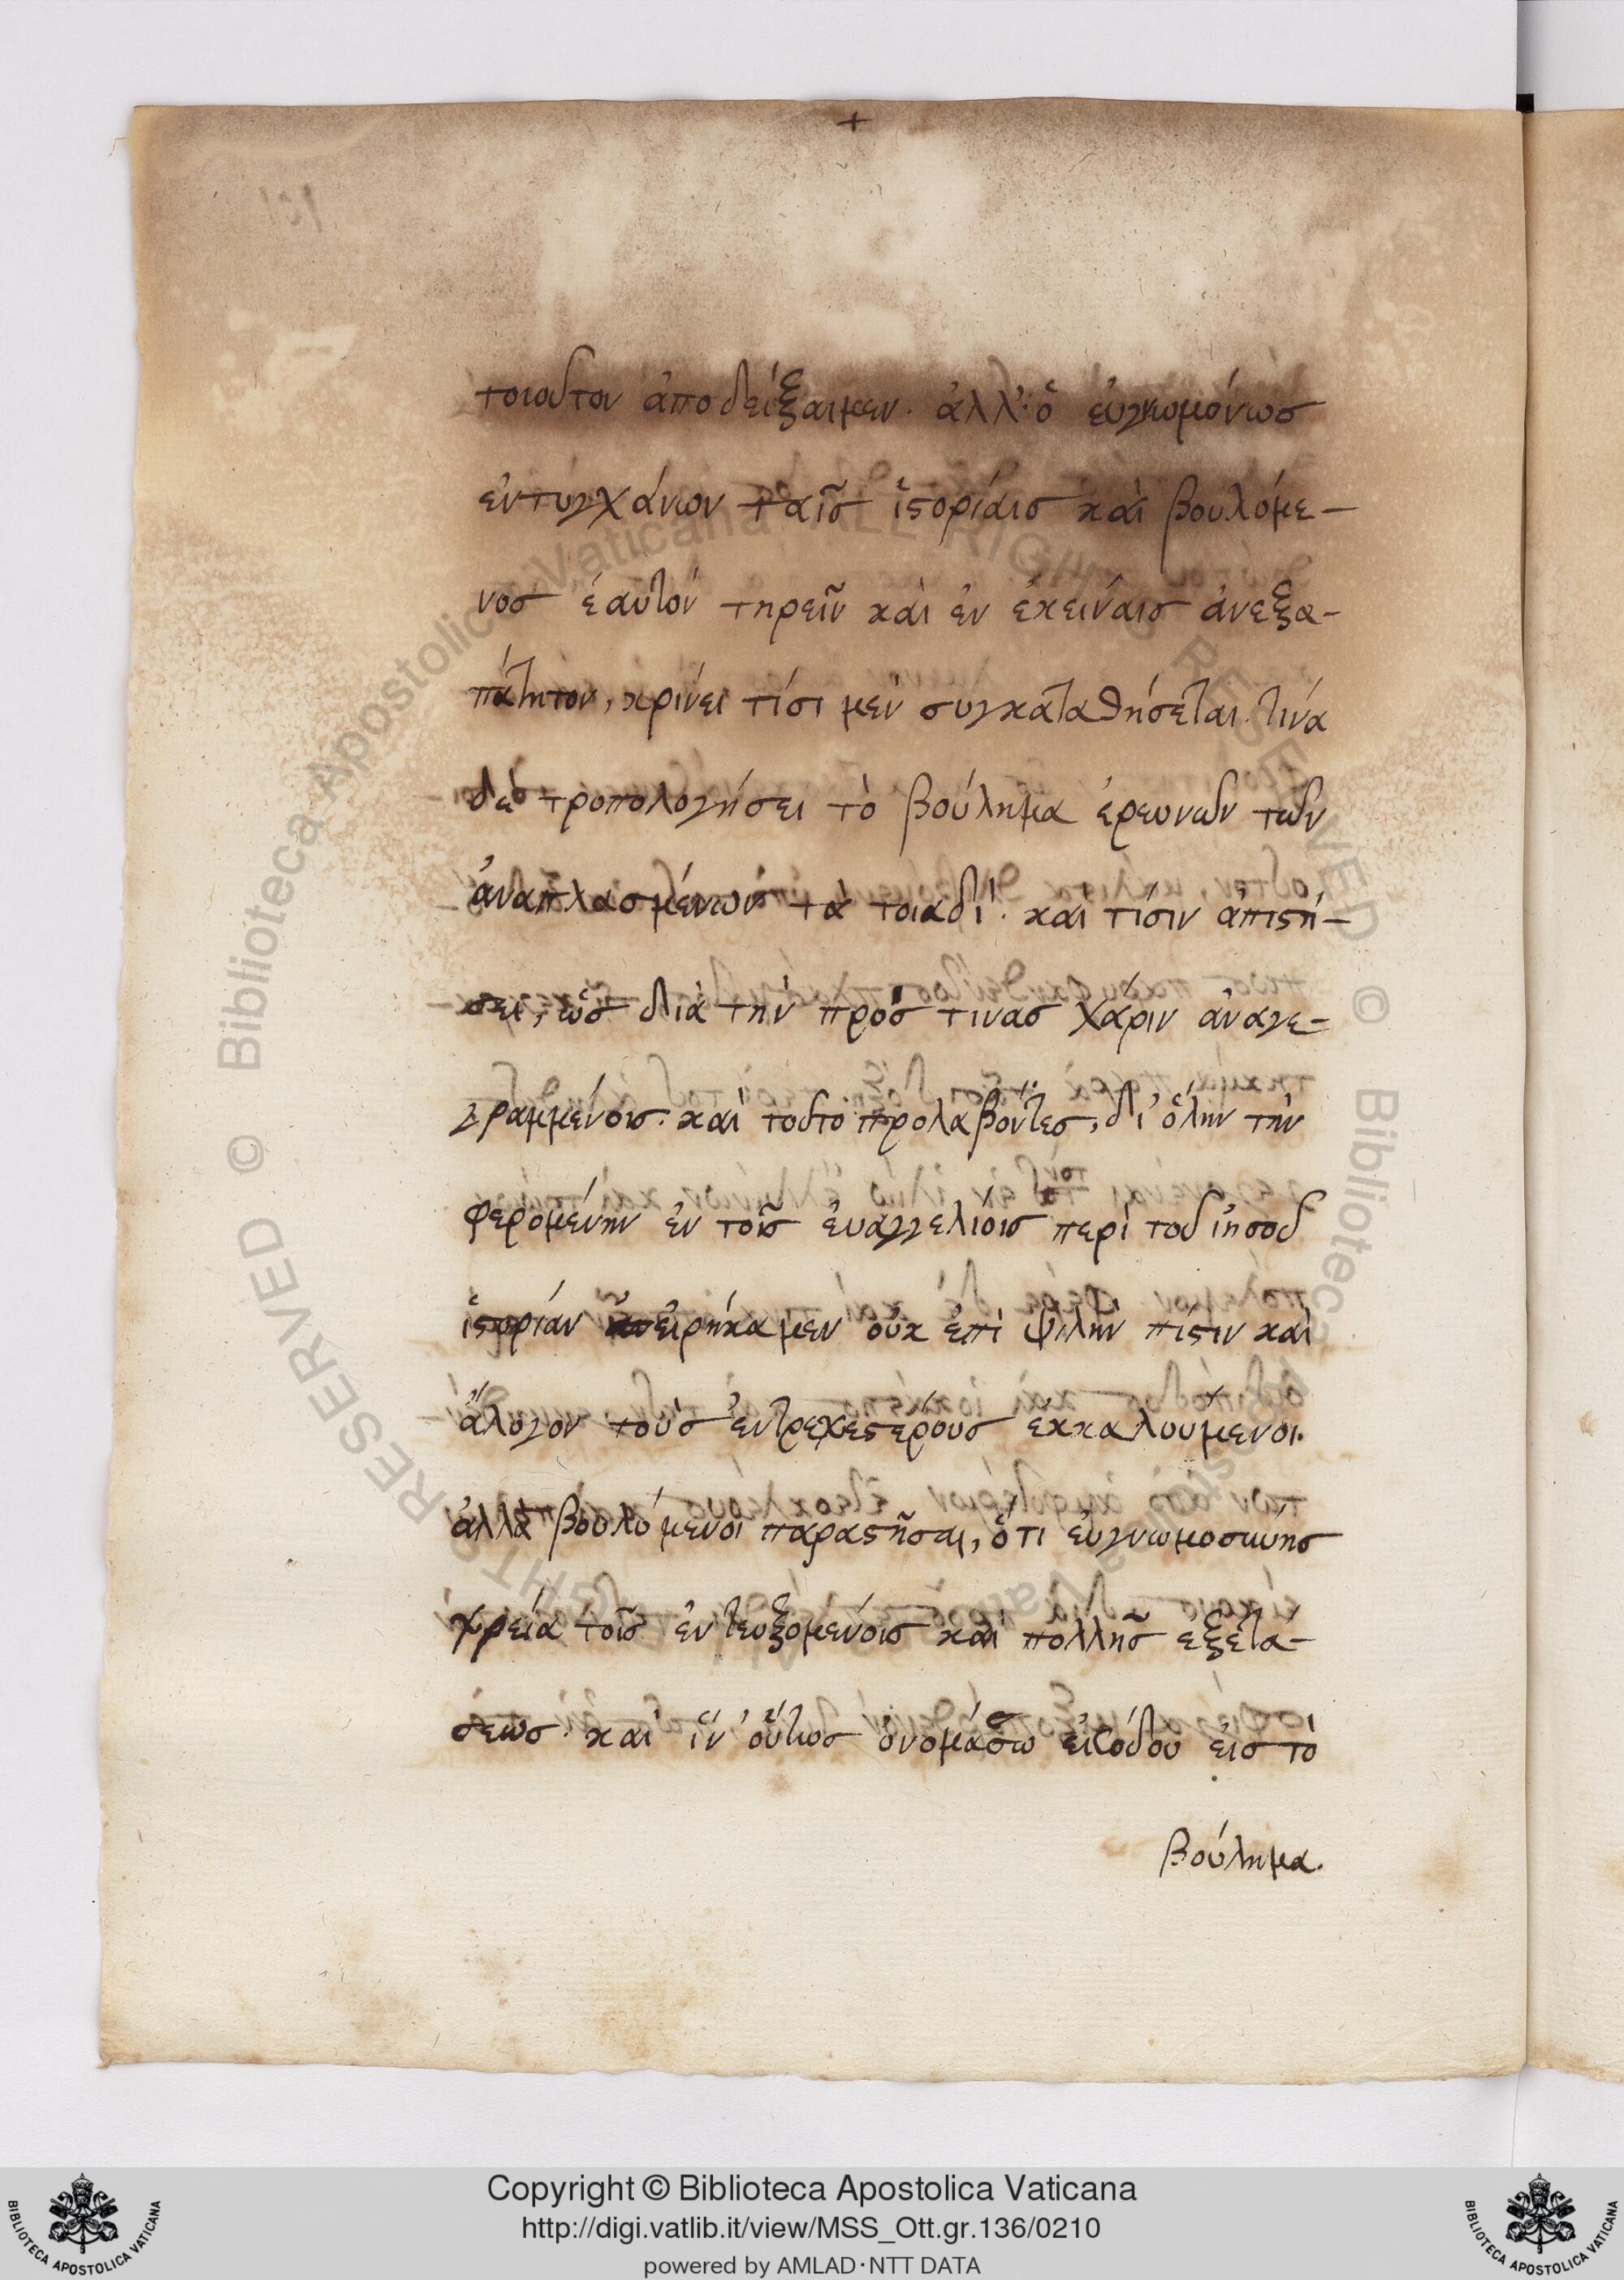 +
τοιοῦτον ἀποδείξαιμεν. ἀλλ' ὁ εὐγνωμόνωσ
ἐντυγχάνων ταῖσ ἱϛορίαισ καὶ βουλόμε-
νοσ ἑαυτὸν τηρεῖν καὶ ἐν ἐκείναισ ἀνεξα-
πάτητον, κρίνει τίσι μὲν συγκαταθήσεται. τίνα
δὲ τροπολογήσει τὸ βούλημα ἐρευνῶν τῶν
ἀναπλασμένων τὰ τοιαδί. καὶ τίσιν ἀπιϛή-
σει, ὡσ διὰ τὴν πρόσ τινασ χάριν ἀναγε-
γραμμένοισ. καὶ τοῦτο προλαβόντεσ, δι' ὅλην τὴν
φερομένην ἐν τοῖσ ἐυαγγελίοισ περὶ τοῦ ἰησοῦ
ἱϛορίαν εἰρήκαμεν οὐκ ἐπὶ ψιλὴν πίϛιν καὶ
ἄλογον τοὺσ ἐντρεχεϛέρουσ ἐκκαλούμενοι.
ἀλλὰ βουλόμενοι παραϛῆσαι, ὅτι εὐγνωμοσύνησ
χρεία τοῖσ ἐντευξομένοισ καὶ πολλῆσ ἐξετά-
σεωσ. καὶ ἵν' οὕτωσ ὀνομάσω εἰσόδου εἰσ τὸ
βούλημα.
Copyright © Biblioteca Apostolica Vaticana
http://digi.vatlib.it/view/MSS_Ott.gr.136/0210
powered by AMLAD·NTT DATA
BIBLIOTECA APOSTOLICA VATICANA
BIBLIOTECA APOSTOLICA VATICANA